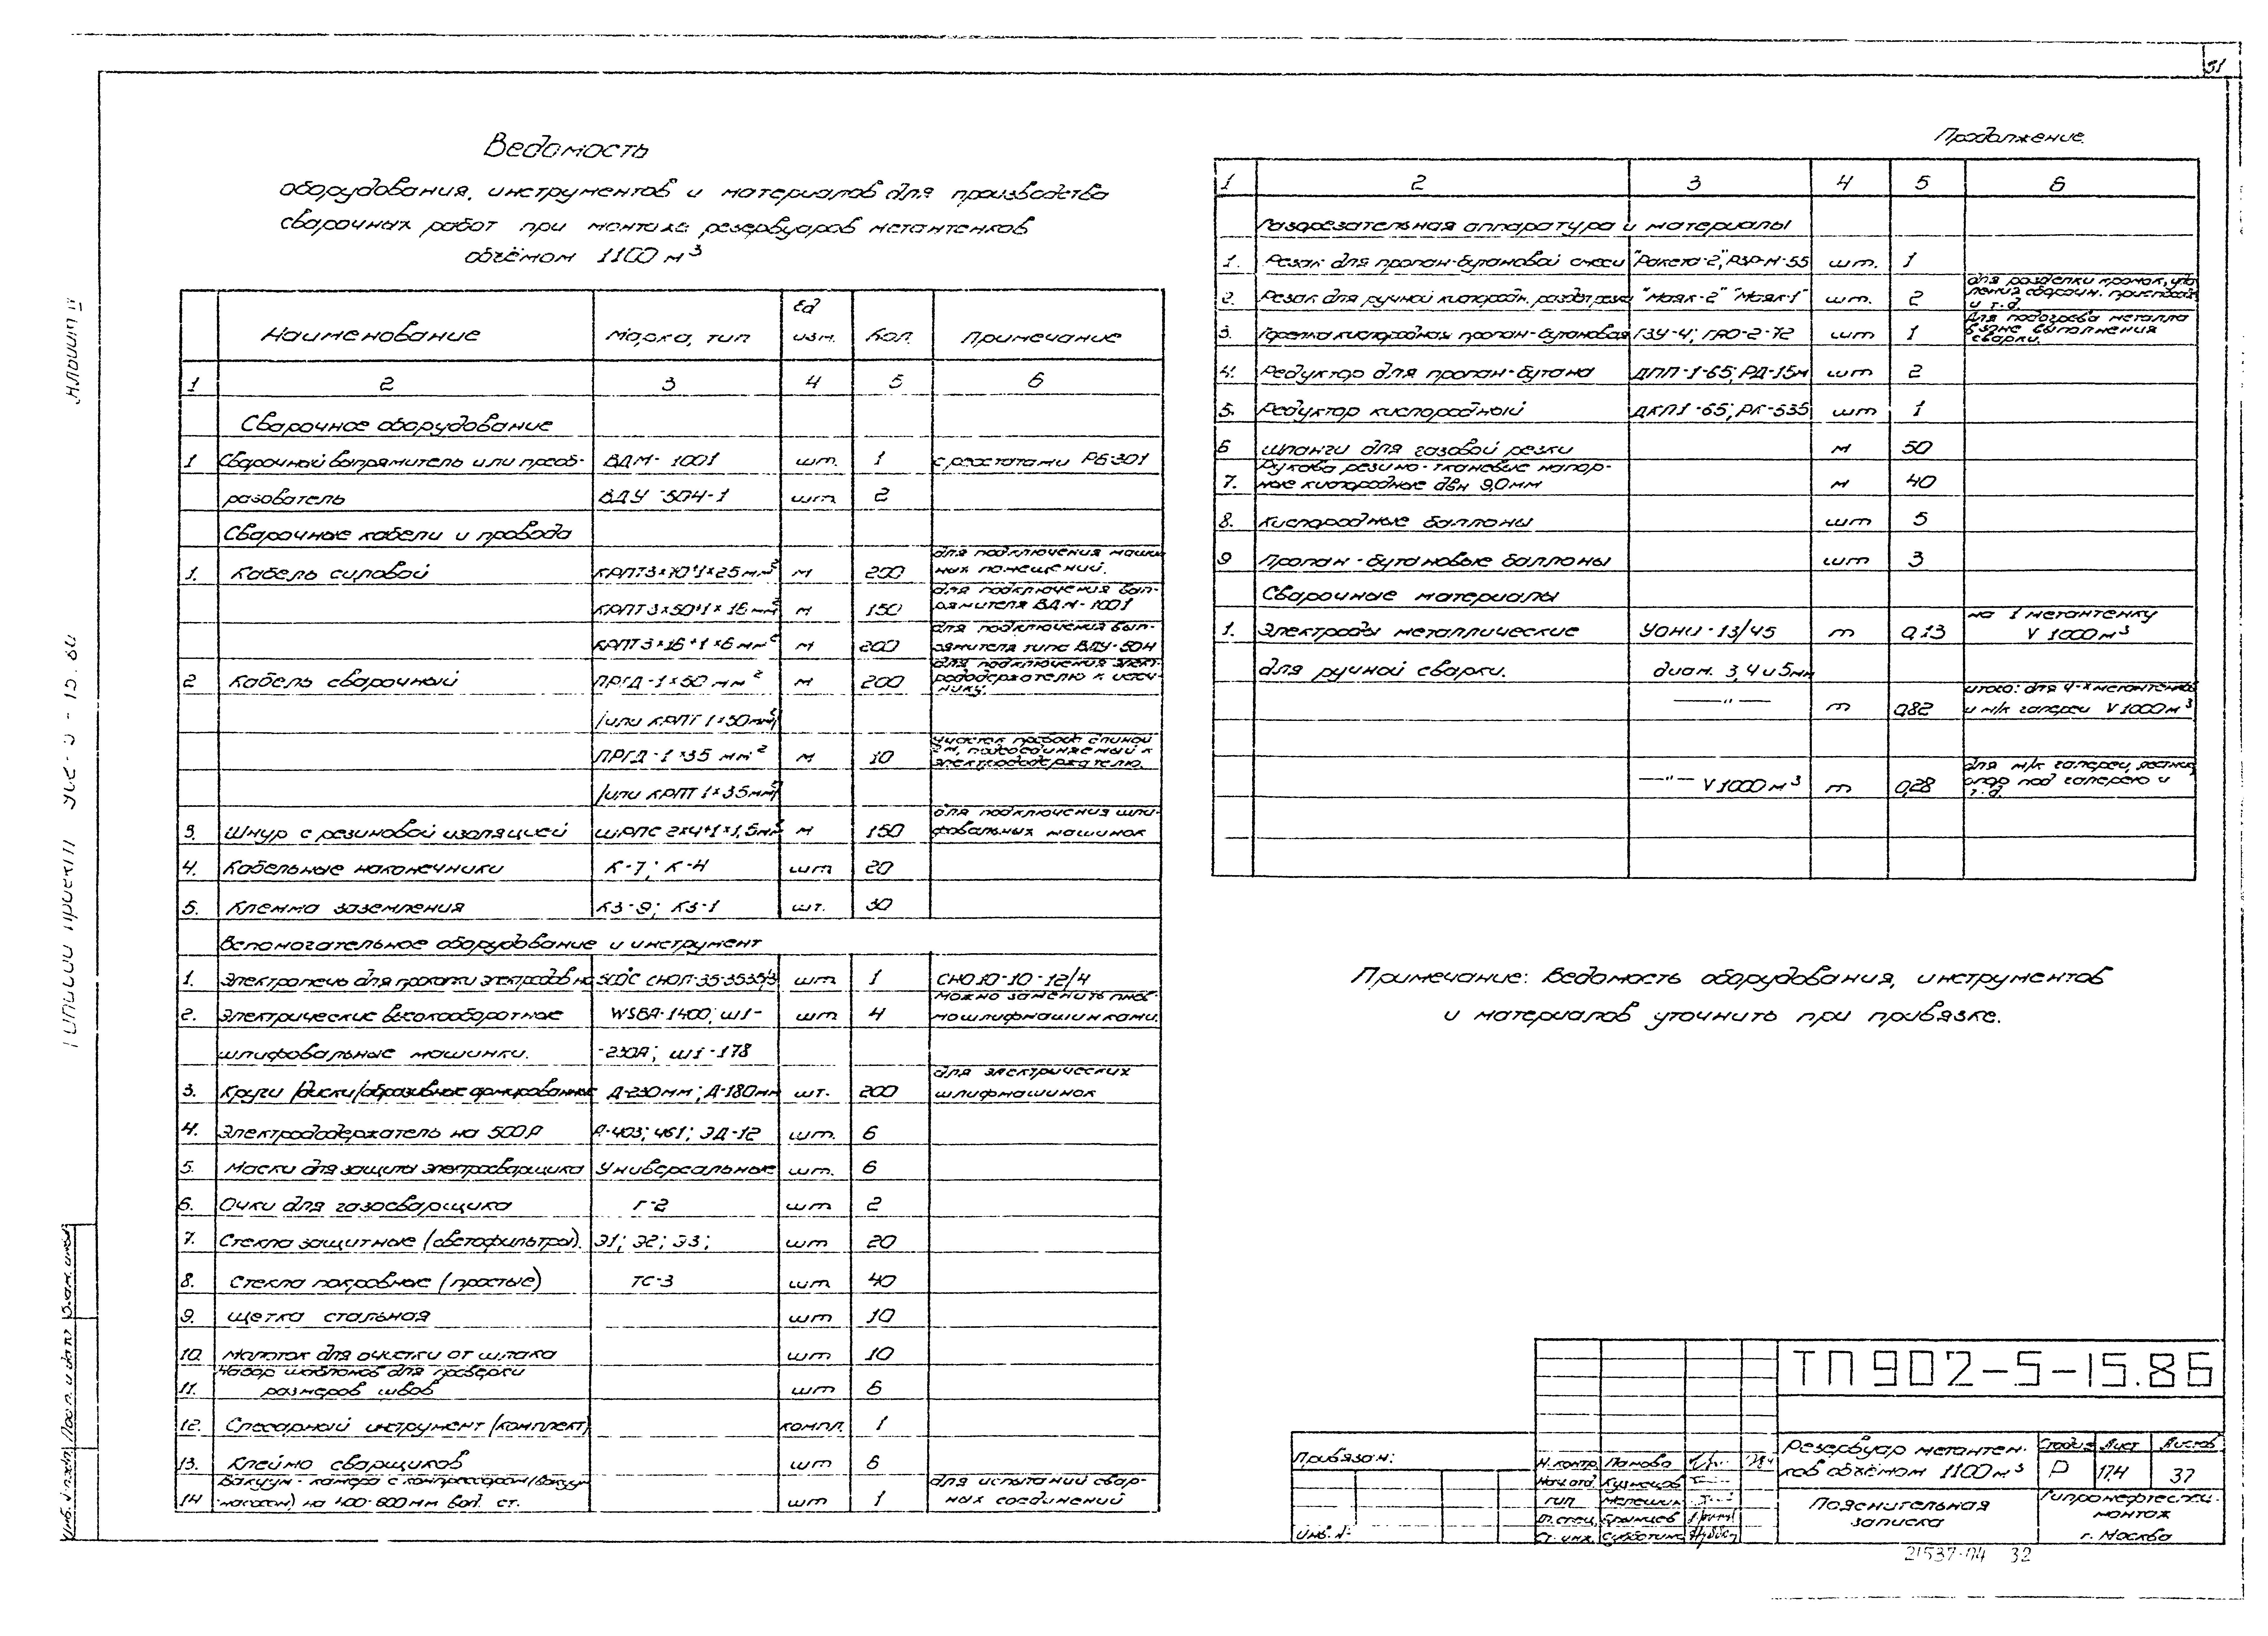 31
Ведомость
оборудования, инструментов и материалов для производства
сварочных работ при монтаже резервуаров метантенков
объёмом 1100 м³
Наименование Марка, тип Ед изм. Кол. Примечание
1 2 3 4 5 6
Сварочное оборудование
1 Сварочный выпрямитель или преоб- ВДМ-1001 шт. 1 с реостатами РБ-301
разователь ВДУ-504-1 шт. 2
Сварочные кабели и провода
1. Кабель силовой КРПТ 3×70+1×25 мм² м 200 для подключения машин-
ных помещений.
КРПТ 3×50+1×16 мм² м 150 для подключения вып-
рямителя ВДМ-1001
КРПТ 3×16+1×6 мм² м 200 для подключения вып-
рямителя типа ВДУ-504
2 Кабель сварочный ПРГД-1×50 мм² м 200 для подключения элект-
рододержателю к источ-
нику.
/или КРПТ 1×50мм²/
ПРГД-1×35 мм² м 10 участок провода длиной
2м, подсоединяемый к
электрододержателю.
/или КРПТ 1×35мм²/
3. Шнур с резиновой изоляцией ШРПС 2×4+1×1,5мм² м 150 для подключения шли-
фовальных машинок
4. Кабельные наконечники К-7; К-4 шт 20
5. Клемма заземления КЗ-9; КЗ-1 шт. 30
Вспомогательное оборудование и инструмент
1. Электропечь для прокалки электродов на 500°С СНОЛ-35-3535/3 шт 1 СНО 10-10-12/4
2. Электрические высокооборотные WSBA-1400; Ш1- шт 4 можно заменить пнев-
мошлифмашинками.
шлифовальные машинки. -230А; Ш1-178
3. Круги /диски/абразивные армированные Д-230мм; Д-180мм шт. 200 для электрических
шлифмашинок
4. Электрододержатель на 500А А-403; 461; ЭД-12 шт. 6
5. Маски для защиты электросварщика Универсальные шт. 6
6. Очки для газосварщика Г-2 шт 2
7. Стекла защитные (светофильтры). Э1; Э2; Э3; шт 20
8. Стекла покровные (простые) ТС-3 шт 40
9. Щетка стальная шт 10
10. Молоток для очистки от шлака шт 10
11. Набор шаблонов для проверки
размеров швов шт 6
12. Слесарный инструмент /комплект/ компл. 1
13. Клеймо сварщиков шт 6
14 Вакуум-камера с компрессором (вакуум
насосом) на 400-600мм вод. ст. шт 1 для испытаний свар-
ных соединений
Продолжение.
1 2 3 4 5 6
Газорезательная аппаратура и материалы
1. Резак для пропан-бутановой смеси "Ракета-2", РЗР-М-55 шт. 1
2. Резак для ручной кислородн. раздел. резки "Маяк-2" "Маяк-1" шт. 2 для разделки кромок, уда-
ления сборочн. приспособ.
и т.д.
3. Горелка кислородная пропан-бутановая ГЗУ-4; ГАО-2-72 шт 1 Для подогрева металла
в зоне выполнения
сварки.
4. Редуктор для пропан-бутана ДПП-1-65; РД-15м шт 2
5. Редуктор кислородный ДКП1-65; РК-535 шт 1
6 шланги для газовой резки м 50
7. Рукава резино-тканевые напор-
ные кислородные двн 9,0мм м 40
8. Кислородные баллоны шт 5
9 Пропан-бутановые баллоны шт 3
Сварочные материалы
1. Электроды металлические УОНИ-13/45 т 0,13 на 1 метантенку
V 1000м³
для ручной сварки. диам. 3,4 и 5мм
—"— т 0,82 итого: для 4-х метантенков
и м/к галереи V 1000м³
—"— V 1000м³ т 0,28 для м/к галереи, лестниц,
опор под галерею и
т.д.
Примечание: Ведомость оборудования, инструментов
и материалов уточнить при привязке.
ТП 902-5-15.86
Привязан:
Инв. №
Н.контр. Панова
Нач.отд Кузнецов
ГИП Мелешин
Гл.спец.
Ст. инж. Субботина
Резервуар метантен-
ков объёмом 1100м³
Стадия Лист Листов
Р 17.4 37
Пояснительная
записка
Гипронефтеспец-
монтаж
г. Москва
21537-04 32
Типовой проект 902-5-15.86
Альбом IV
Инв. № подл. Подп. и дата Взам. инв. №